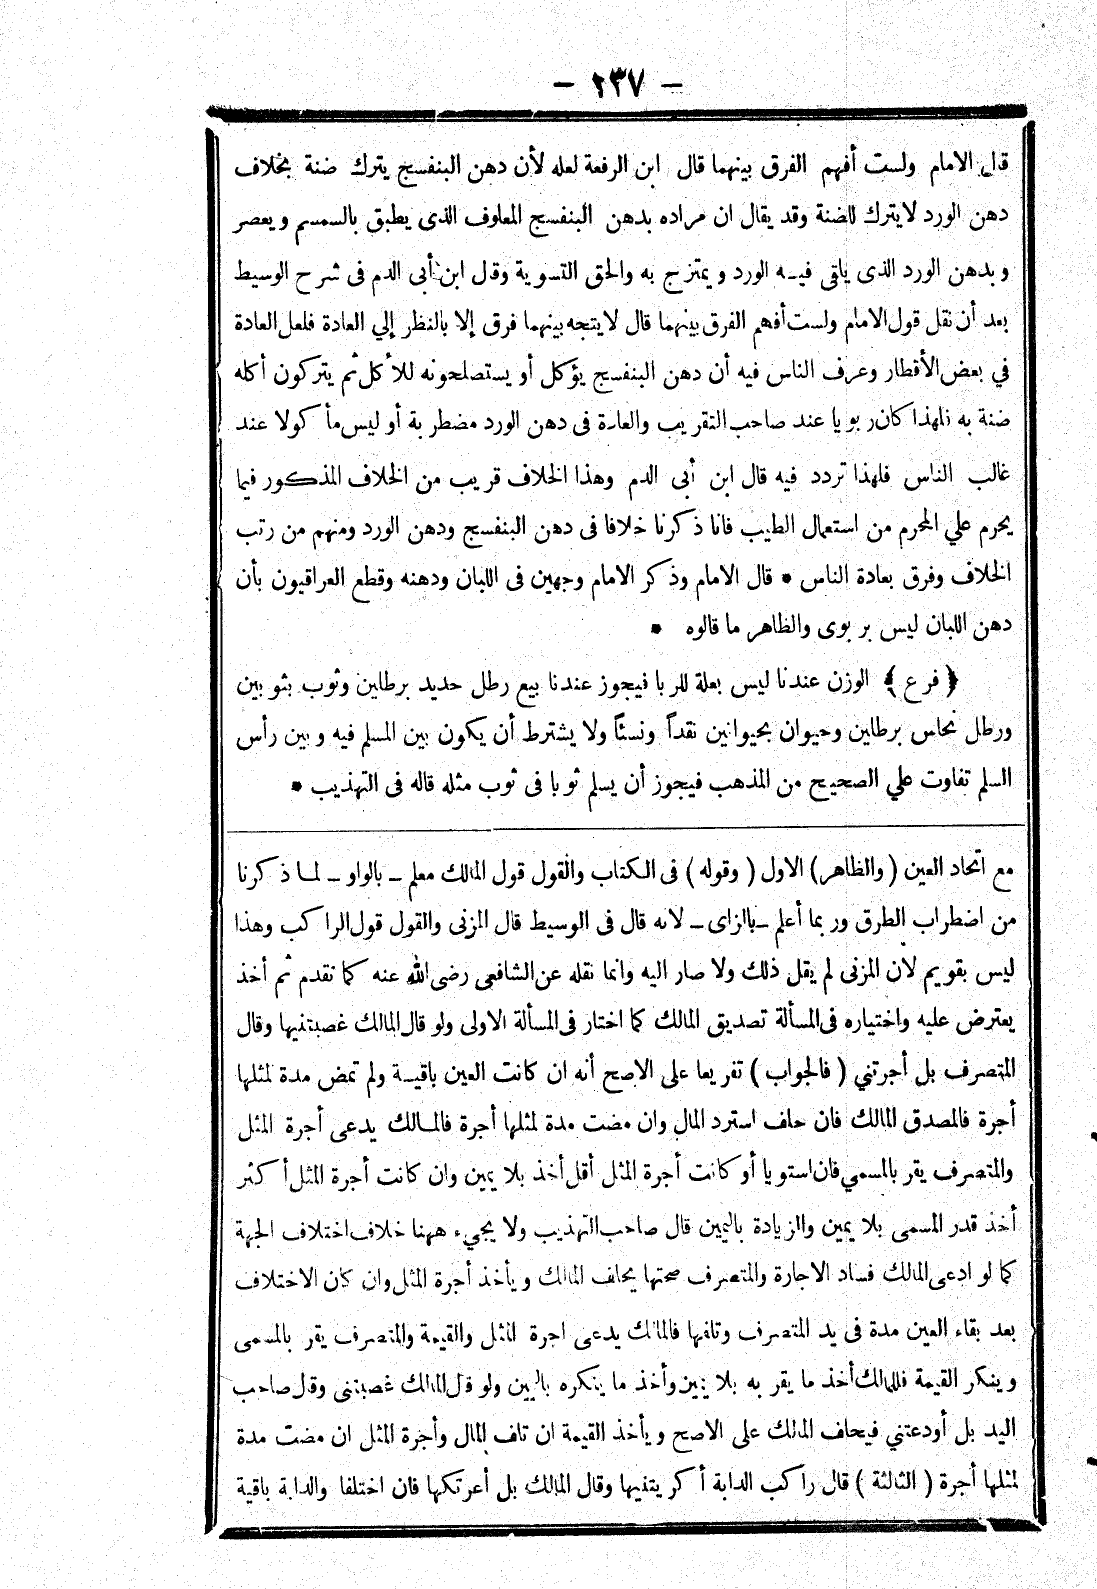 — ٢٣٧ —
قال الامام ولست أفهم الفرق بينهما قال ابن الرفعة لعله لأن دهن البنفسج يترك ضنة بخلاف
دهن الورد لايترك للضنة وقد يقال ان مراده بدهن البنفسج المعاوف الذى يطبق بالسمسم ويعصر
وبدهن الورد الذى ياقى فيه الورد ويمتزج به والحق التسوية وقال ابن أبى الدم فى شرح الوسيط
بعد أن نقل قول الامام ولست أفهم الفرق بينهما قال لايتجه بينهما فرق إلا بالنظر إلي العادة فلعل العادة
في بعض الأقطار وعرف الناس فيه أن دهن البنفسج يؤكل أو يستصلحونه للأكل ثم يتركون أكله
ضنة به فلهذا كان ربويا عند صاحب التقريب والعادة فى دهن الورد مضطربة أو ليس مأكولا عند
غالب الناس فلهذا تردد فيه قال ابن أبى الدم وهذا الخلاف قريب من الخلاف المذكور فيما
يحرم علي المحرم من استعمال الطيب فانا ذكرنا خلافا فى دهن البنفسج ودهن الورد ومنهم من رتب
الخلاف وفرق بعادة الناس * قال الامام وذكر الامام وجهين فى اللبان ودهنه وقطع العراقيون بأن
دهن اللبان ليس بربوى والظاهر ما قالوه *
﴿ فرع ﴾ الوزن عندنا ليس بعلة للربا فيجوز عندنا بيع رطل حديد برطلين وثوب بثوبين
ورطل نحاس برطلين وحيوان بحيوانين نقداً ونسئاً ولا يشترط أن يكون بين المسلم فيه وبين رأس
السلم تفاوت علي الصحيح من المذهب فيجوز أن يسلم ثوبا فى ثوب مثله قاله فى التهذيب *
مع اتحاد العين ( والظاهر ) الاول ( وقوله ) فى الكتاب والقول قول المالك معلم ـ بالواو ـ لما ذكرنا
من اضطراب الطرق وربما أعلم ـ بالزاى ـ لانه قال فى الوسيط قال المزنى والقول قول الراكب وهذا
ليس بقويم لان المزنى لم يقل ذلك ولا صار اليه وانما نقله عن الشافعى رضى الله عنه كما تقدم ثم أخذ
يعترض عليه واختياره فى المسألة تصديق المالك كما اختار فى المسألة الاولى ولو قال المالك غصبتنيها وقال
المتصرف بل أجرتني ( فالجواب ) تفريعا على الاصح أنه ان كانت العين باقية ولم تمض مدة لمثلها
أجرة فالمصدق المالك فان حلف استرد المال وان مضت مدة لمثلها أجرة فالمالك يدعى أجرة المثل
والمتصرف يقر بالمسمي فان استويا أو كانت أجرة المثل أقل أخذ بلا يمين وان كانت أجرة المثل أكثر
أخذ قدر المسمى بلا يمين والزيادة باليمين قال صاحب التهذيب ولا يجيء ههنا خلاف اختلاف الجهة
كما لو ادعى المالك فساد الاجارة والمتصرف صحتها يحلف المالك ويأخذ أجرة المثل وان كان الاختلاف
بعد بقاء العين مدة فى يد المتصرف وتلفها فالمالك يدعى اجرة المثل والقيمة والمتصرف يقر بالمسمى
وينكر القيمة فللمالك أخذ ما يقر به بلا يمين وأخذ ما ينكره باليمين ولو قال المالك غصبتنى وقال صاحب
اليد بل أودعتني فيحلف المالك على الاصح ويأخذ القيمة ان تلف المال وأجرة المثل ان مضت مدة
لمثلها أجرة ( الثالثة ) قال راكب الدابة أكريتنيها وقال المالك بل أعرتكها فان اختلفا والدابة باقية